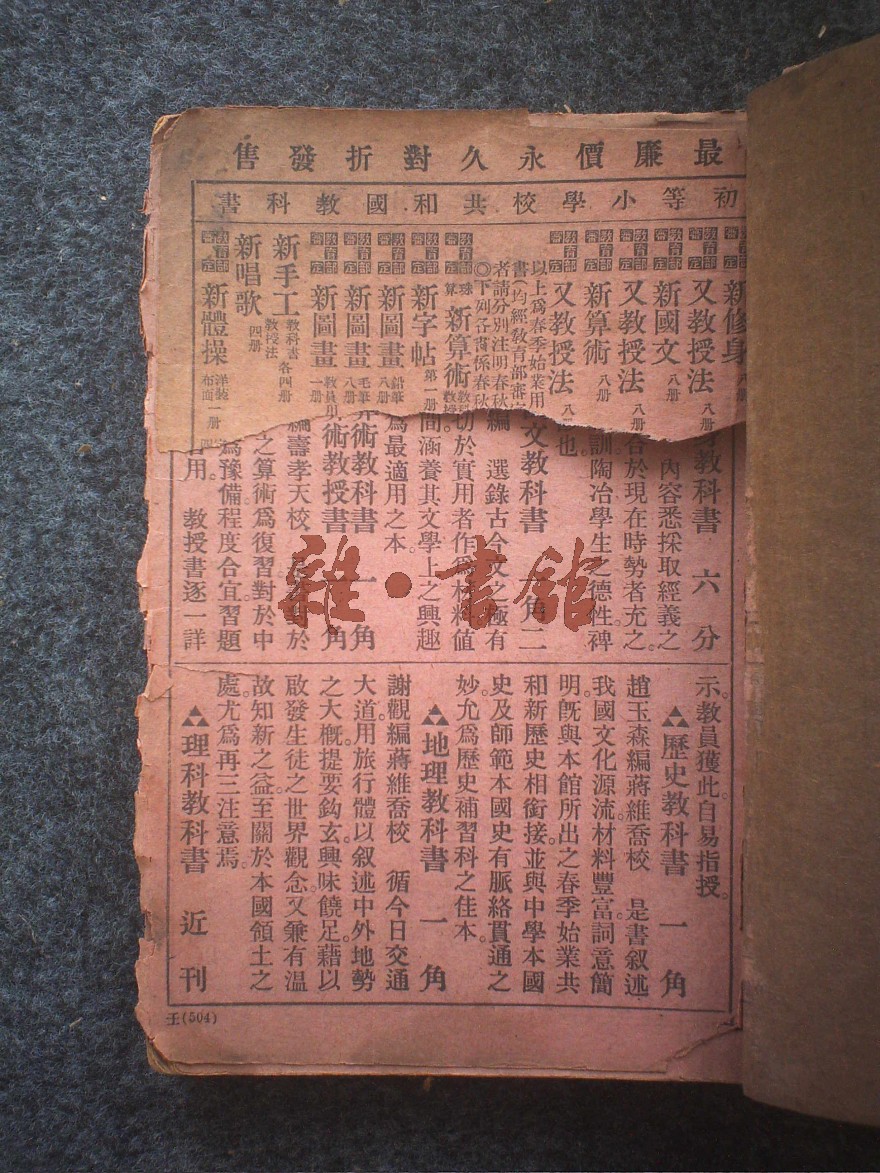 最廉價永久對折發售
初等小學校共和國教科書
教育部審定 新修身 八册
教育部審定 又教授法 八册
教育部審定 新國文 八册
教育部審定 又教授法 八册
教育部審定 新算術 八册
教育部審定 又教授法 八册
以上爲春季始業用
書(均經教育部審
者請分別注明春秋
◎下列各書係春秋
新算術
教育部審定 新字帖 第一册
教育部審定 新圖畫 鉛筆 八册
教育部審定 新圖畫 毛筆 八册
教育部審定 新圖畫 教員用 一册
新手工 教科書 教授法 各四册
新唱歌 四册
教育部審定 新體操 洋裝布面一册
教科書 六分
內容悉採取經義之
合於現在時勢者充之。
訓陶冶學生之德性裨
也。
文教科書 角二
編 選錄古今文之極有
切於實用者作爲材料值
間涵養其文學上之興趣
爲最適用之本。
術教科書 一角
術教授書 角
編壽孝天校 於
之算術爲復習對於中
爲豫備。程度合宜。習題
用。 教授書逐一詳
示。教員獲此。自易指授。
歷史教科書 一角
趙玉森編蔣維喬校 是書叙述
我國文化源流材料豐富。詞意簡
明。旣與本館所出之春季始業共
和新歷史相銜接並與中學本國
史及師範本國史有脈絡貫通之
妙。允爲歷史補習科之佳本。
地理教科書 一角
謝觀編蔣維喬校 循今日交通
大道用旅行體以叙述中外地勢
之大槪提要鈎玄。興味饒足。藉以
啟發生徒之世界觀念又兼有溫
故知新之益。至關於本國領土之
處。尤爲再三注意焉。
理科教科書 近刊
王(504)
雜·書館